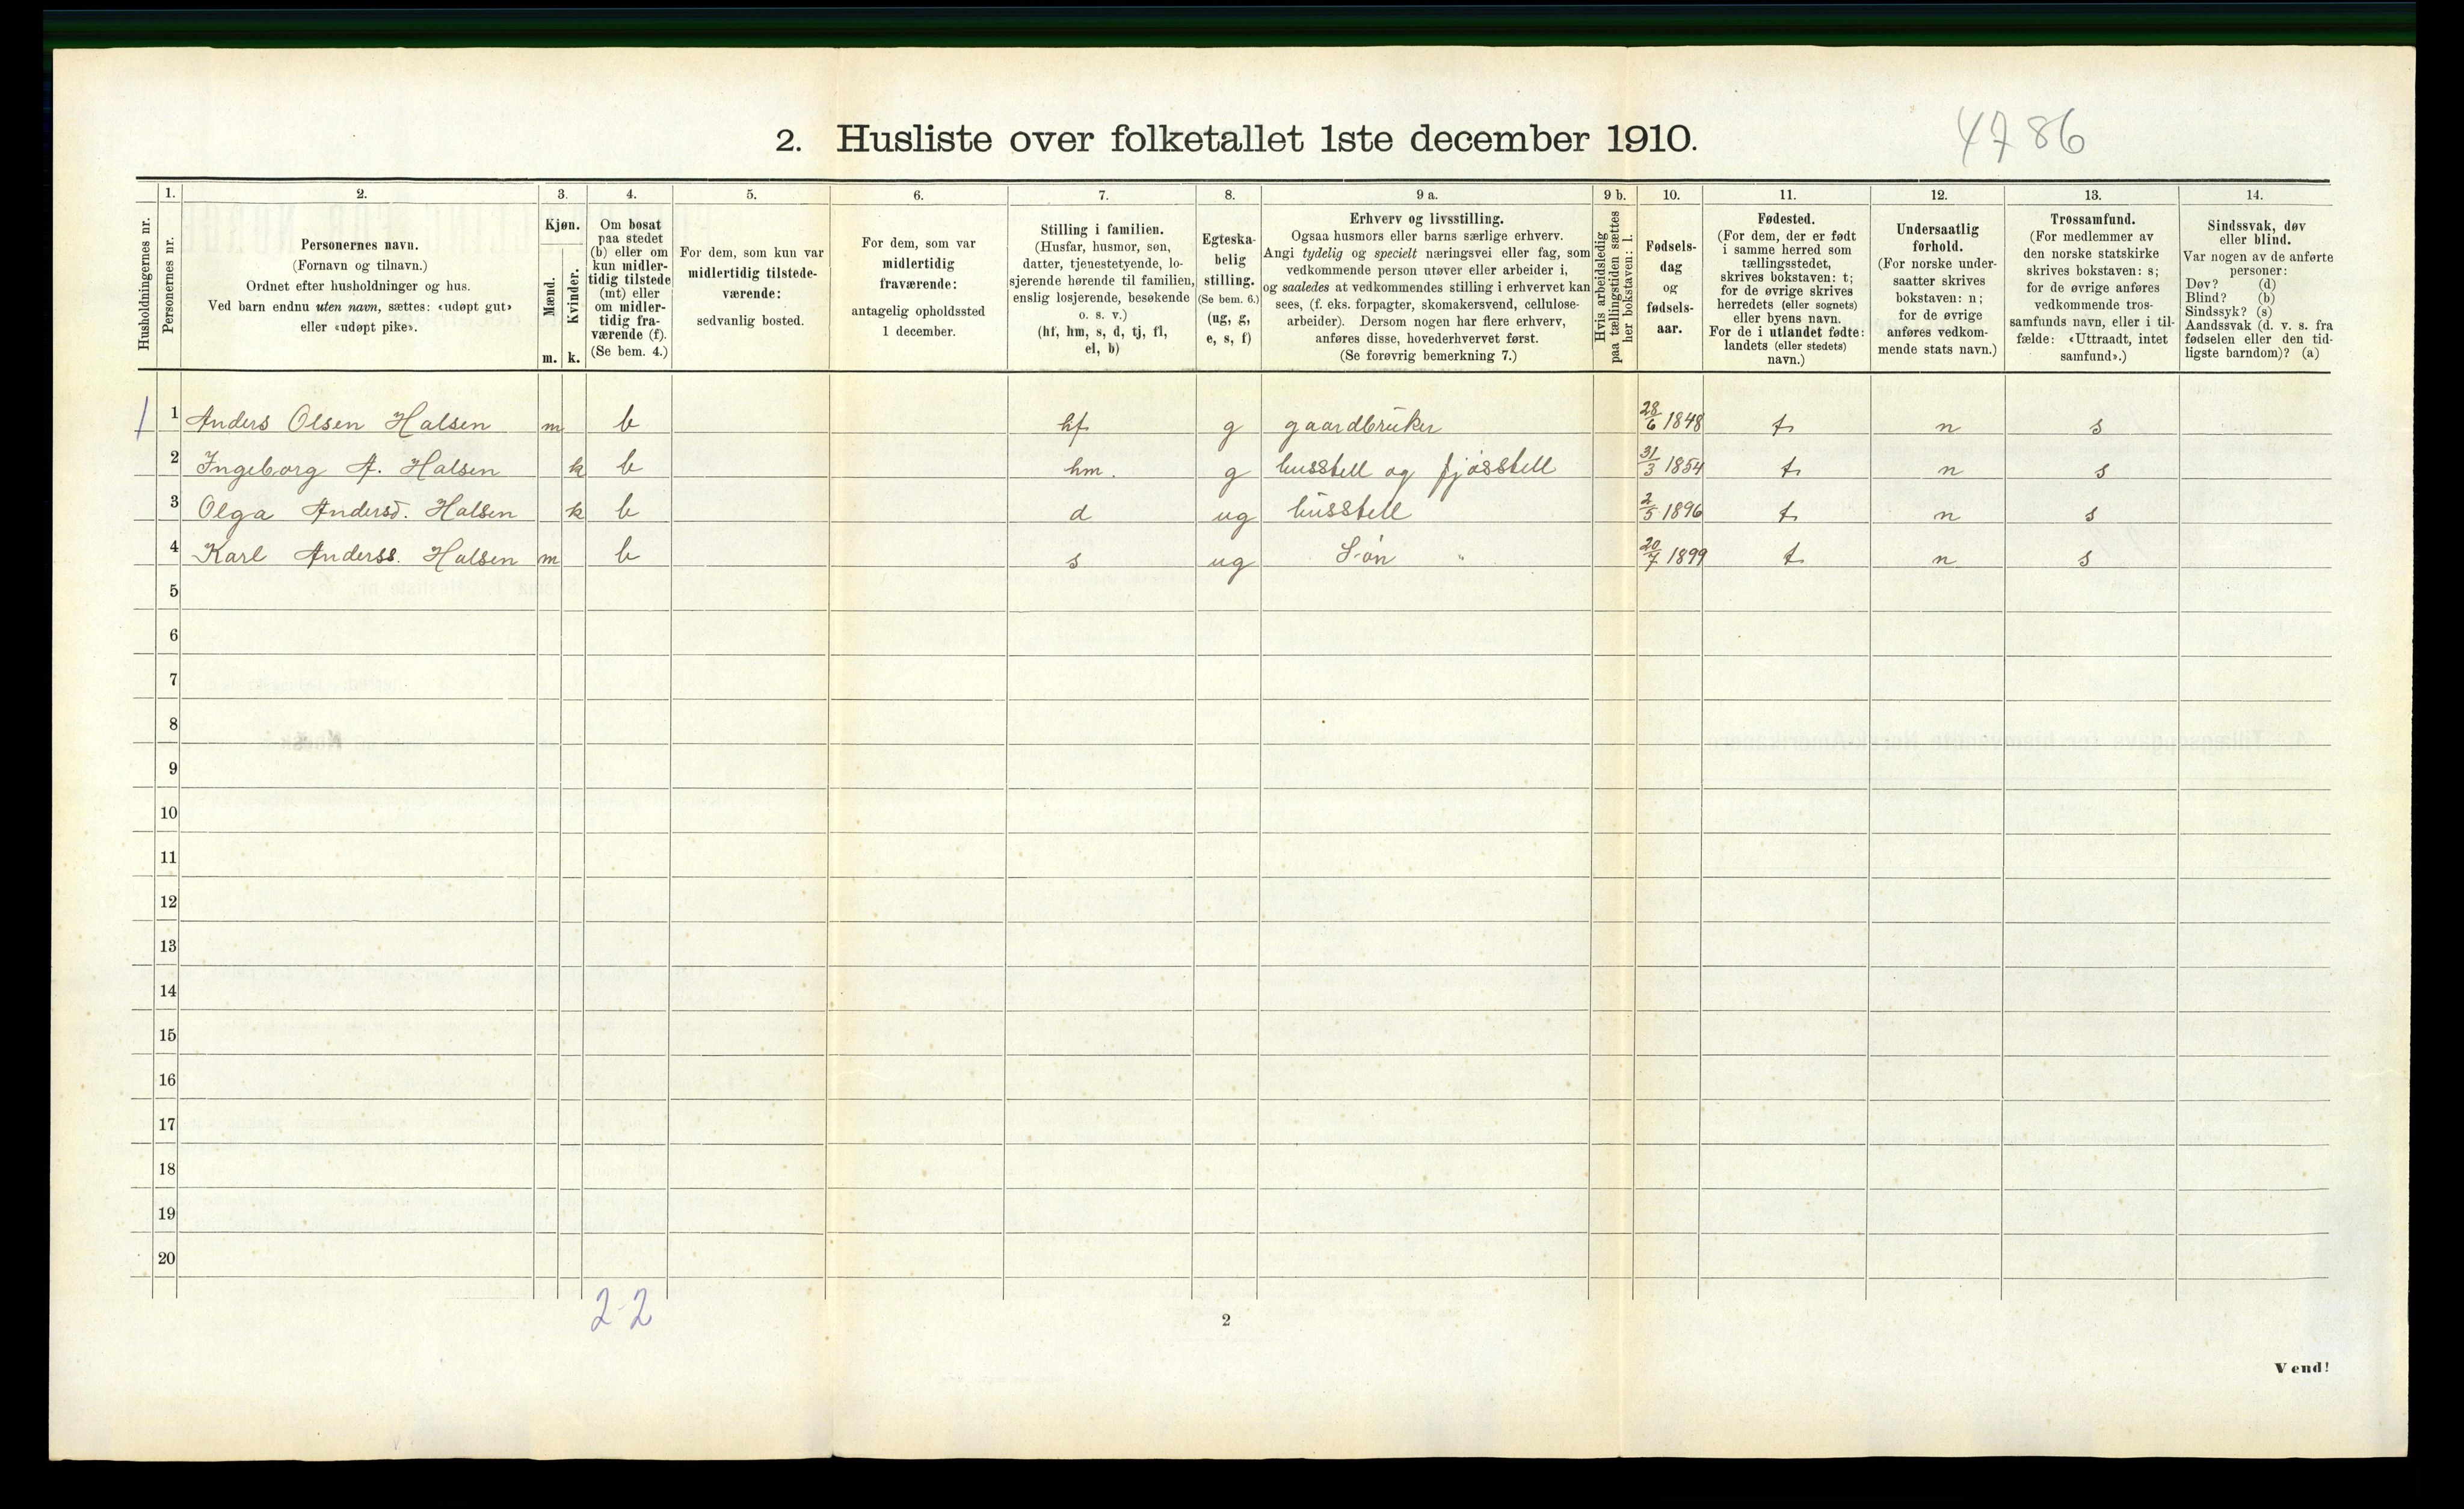 4786
2. Husliste over folketallet 1ste december 1910.
Husholdningernes nr.
1.
Personernes nr.
2.
Personernes navn.
(Fornavn og tilnavn.)
Ordnet efter husholdninger og hus.
Ved barn endnu uten navn, sættes: «udøpt gut»
eller «udøpt pike».
3.
Kjøn.
Mænd.
Kvinder.
m. k.
4.
Om bosat
paa stedet
(b) eller om
kun midler-
tidig tilstede
(mt) eller
om midler-
tidig fra-
værende (f).
(Se bem. 4.)
5.
For dem, som kun var
midlertidig tilstede-
værende:
sedvanlig bosted.
6.
For dem, som var
midlertidig
fraværende:
antagelig opholdssted
1 december.
7.
Stilling i familien.
(Husfar, husmor, søn,
datter, tjenestetyende, lo-
sjerende hørende til familien,
enslig losjerende, besøkende
o. s. v.)
(hf, hm, s, d, tj, fl,
el, b)
8.
Egteska-
belig
stilling.
(Se bem. 6.)
(ug, g,
e, s, f)
9 a.
Erhverv og livsstilling.
Ogsaa husmors eller barns særlige erhverv.
Angi tydelig og specielt næringsvei eller fag, som
vedkommende person utøver eller arbeider i,
og saaledes at vedkommendes stilling i erhvervet kan
sees, (f. eks. forpagter, skomakersvend, cellulose-
arbeider). Dersom nogen har flere erhverv,
anføres disse, hovederhvervet først.
(Se forøvrig bemerkning 7.)
9 b.
Hvis arbeidsledig
paa tællingstiden sættes
her bokstaven: l.
10.
Fødsels-
dag
og
fødsels-
aar.
11.
Fødested.
(For dem, der er født
i samme herred som
tællingsstedet,
skrives bokstaven: t;
for de øvrige skrives
herredets (eller sognets)
eller byens navn.
For de i utlandet fødte:
landets (eller stedets)
navn.)
12.
Undersaatlig
forhold.
(For norske under-
saatter skrives
bokstaven: n;
for de øvrige
anføres vedkom-
mende stats navn.)
13.
Trossamfund.
(For medlemmer av
den norske statskirke
skrives bokstaven: s;
for de øvrige anføres
vedkommende tros-
samfunds navn, eller i til-
fælde: «Uttraadt, intet
samfund».)
14.
Sindssvak, døv
eller blind.
Var nogen av de anførte
personer:
Døv? (d)
Blind? (b)
Sindssyk? (s)
Aandssvak (d. v. s. fra
fødselen eller den tid-
ligste barndom)? (a)
1 1 Anders Olsen Halsen m b hf g gaardbruker 28/6 1848 t n s
2 Ingeborg A. Halsen k b hm. g husstell og fjøsstell 31/3 1854 t n s
3 Olga Andersd. Halsen k b d ug husstell 2/5 1896 t n s
4 Karl Anderss. Halsen m b s ug Søn " 20/7 1899 t n s
5
6
7
8
9
10
11
12
13
14
15
16
17
18
19
20
2-2
2
Vend!